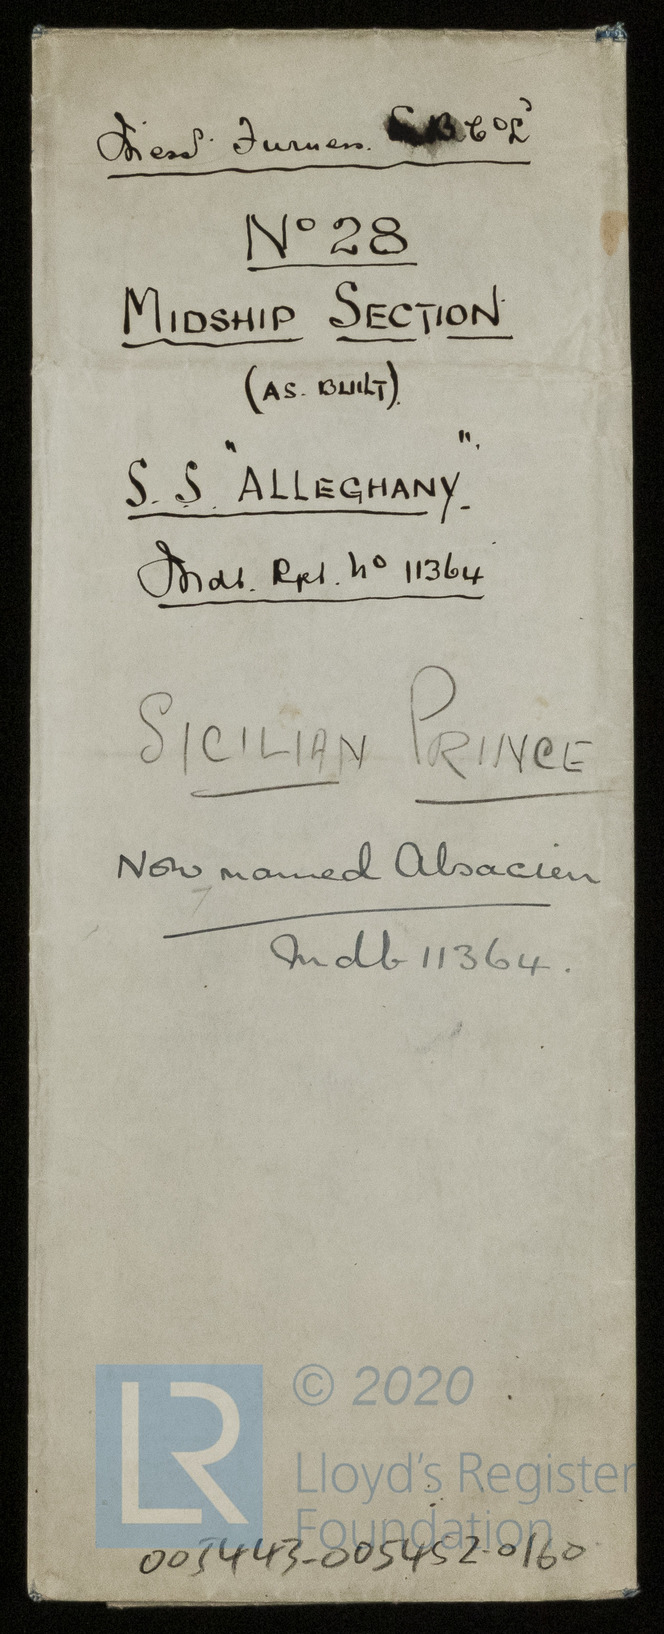 Messrs. Furness. S B Co Ld
No 28
MIDSHIP SECTION
(AS. BUILT).
S. S. "ALLEGHANY".
Mdb. Rpt. No 11364
SICILIAN PRINCE
Now named Alsacien
Mdb 11364.
© 2020
LR
Lloyd's Register
Foundation
005443-005452-0160